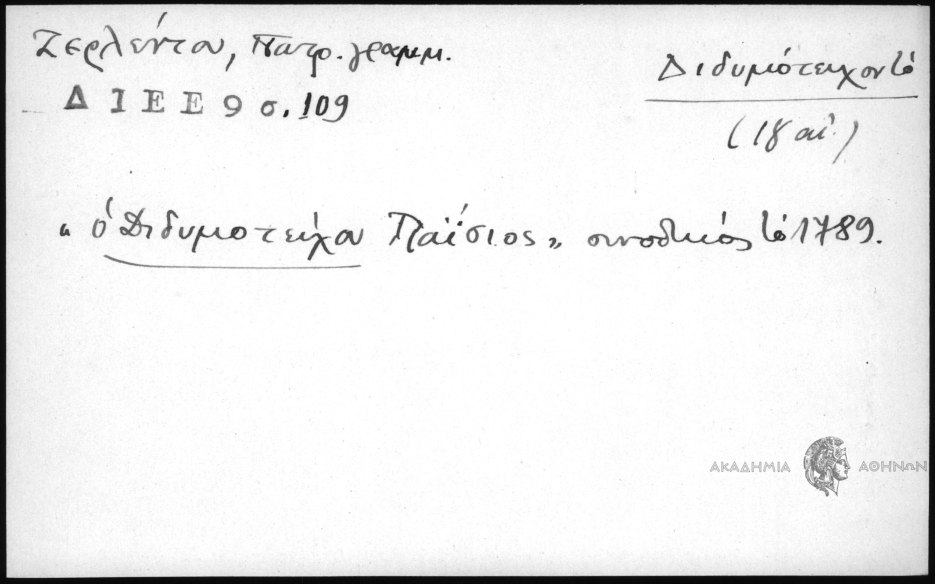 Ζερλέντου, Πατρ. γραμμ.
Δ Ι Ε Ε 9 σ. 109
Διδυμότειχον τό
(18 αἰ.)
" ὁ Διδυμοτείχου Παΐσιος " συνοδικός τό 1789.
ΑΚΑΔΗΜΙΑ ΑΘΗΝΩΝ